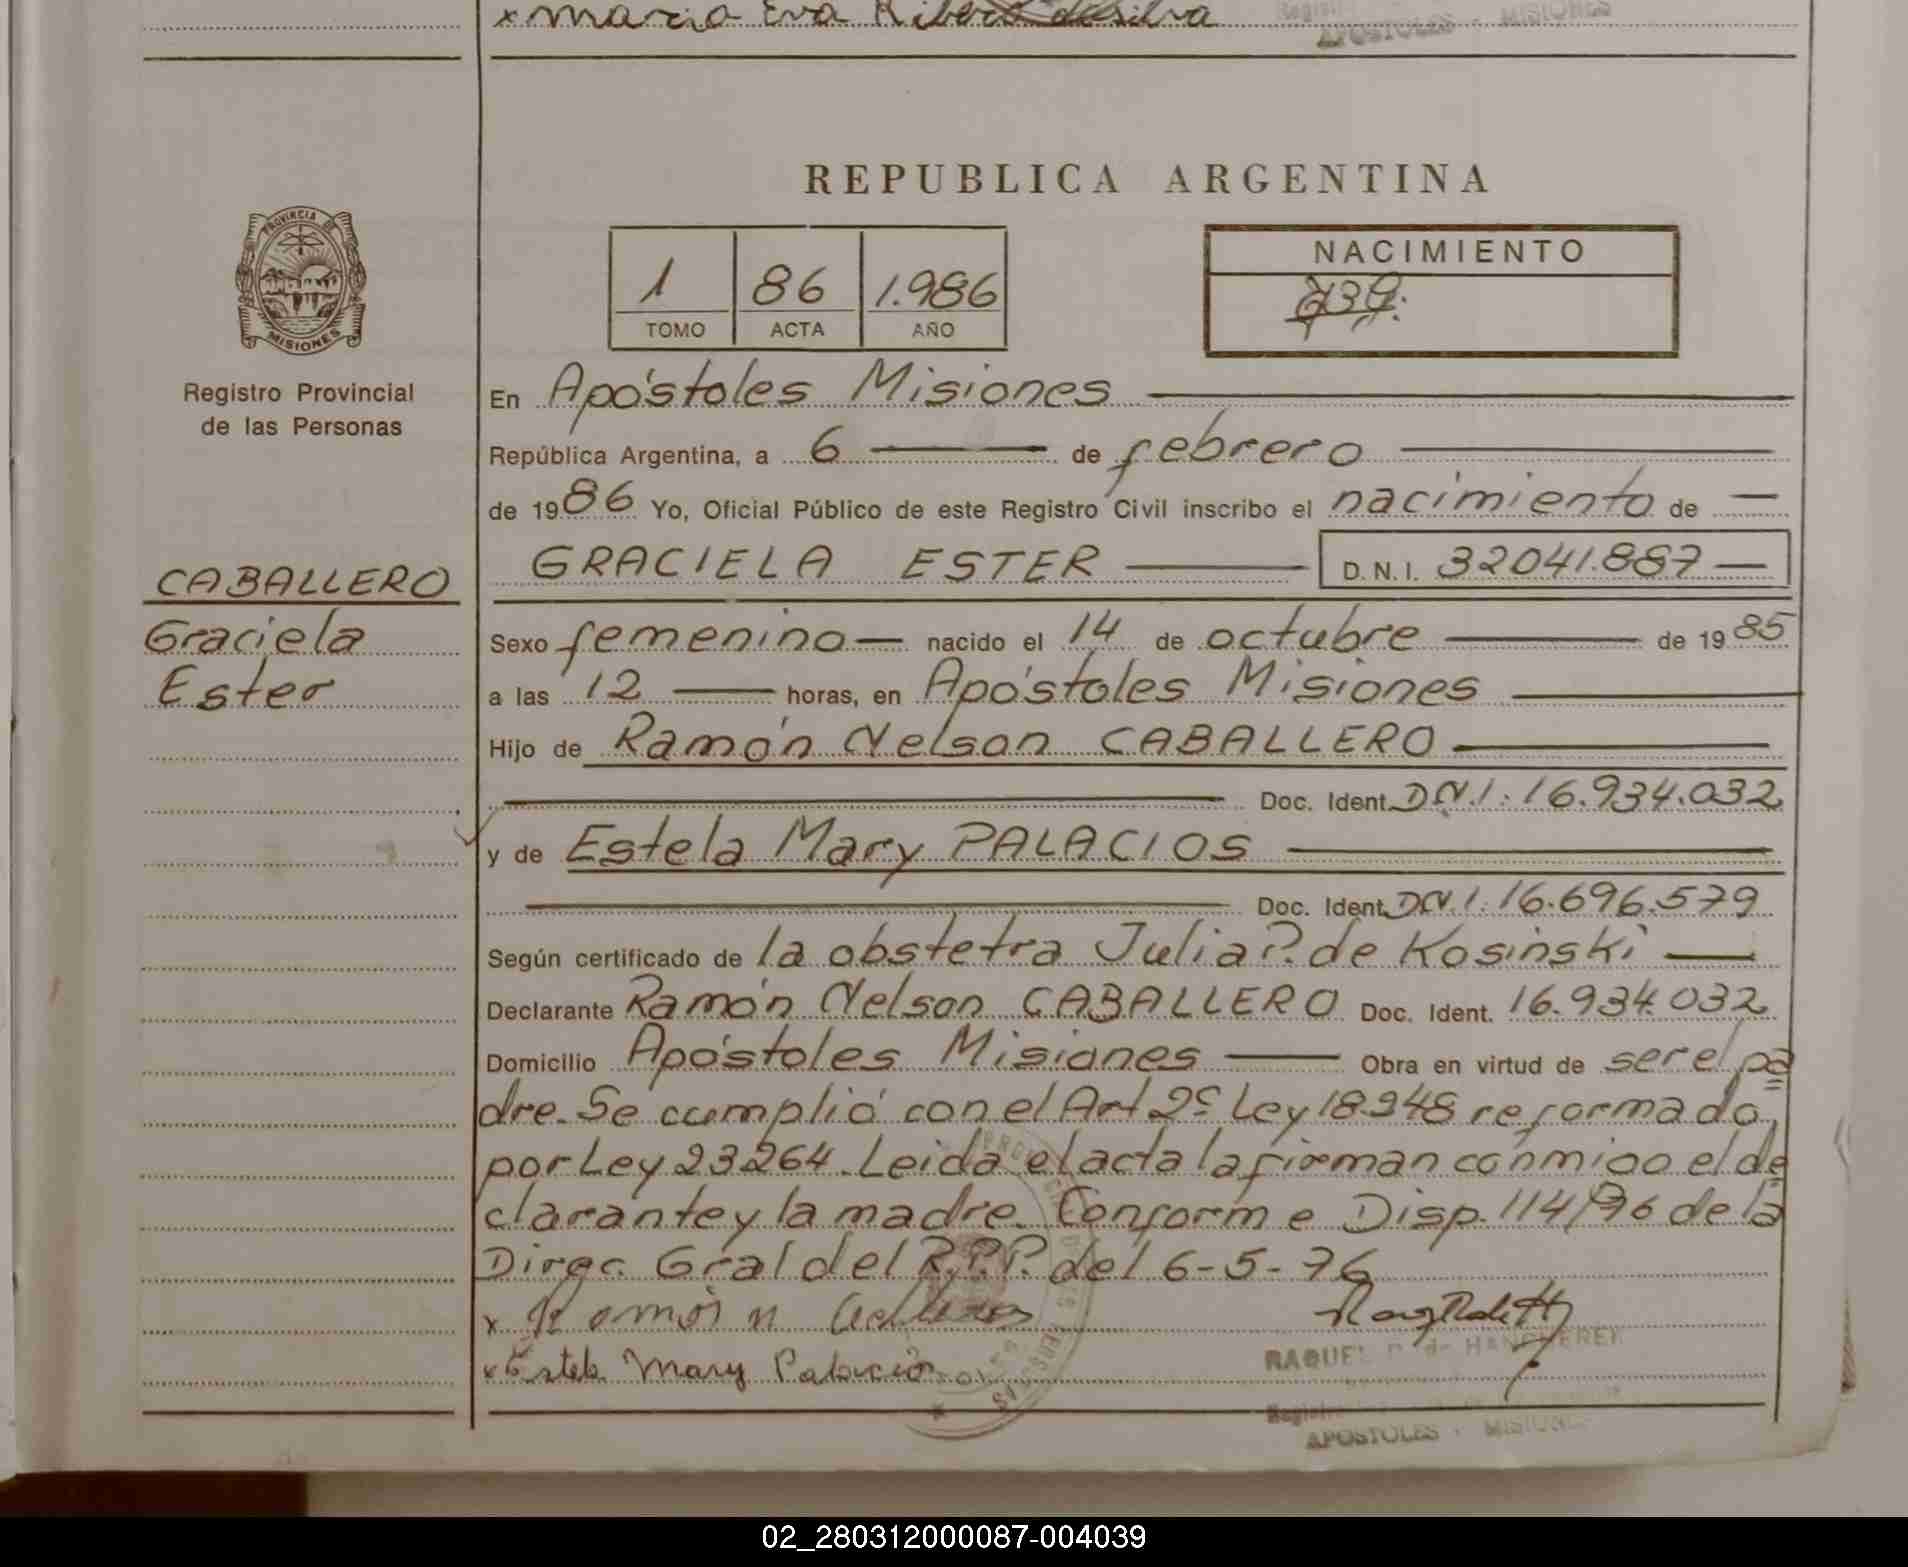 x Maria Eva Ribero de Silva
APOSTOLES - MISIONES
REPUBLICA ARGENTINA
PROVINCIA DE
MISIONES
1 86 1.986
TOMO ACTA AÑO
NACIMIENTO
Registro Provincial
de las Personas
En Apóstoles Misiones
República Argentina, a 6 de febrero
de 1986 Yo, Oficial Público de este Registro Civil inscribo el nacimiento de
GRACIELA ESTER D.N.I. 32041.887
CABALLERO
Graciela
Ester
Sexo femenino nacido el 14 de octubre de 1985
a las 12 horas, en Apóstoles Misiones
Hijo de Ramón Nelson CABALLERO
Doc. Ident. D.N.I: 16.934.032
y de Estela Mary PALACIOS
Doc. Ident. D.N.I: 16.696.579
Según certificado de la obstetra Julia P. de Kosinski
Declarante Ramón Nelson CABALLERO Doc. Ident. 16.934.032
Domicilio Apóstoles Misiones Obra en virtud de ser el pa
dre. Se cumplió con el Art 2º Ley 18.248 reformado
por Ley 23264. Leida el acta la firman conmigo el de
clarante y la madre. Conforme Disp. 114/76 de la
Direc. Gral del R.P.P. del 6-5-76
x Ramón n
x Estela Mary Palacio
RAQUEL
APOSTOLES - MISIONES
02_280312000087-004039